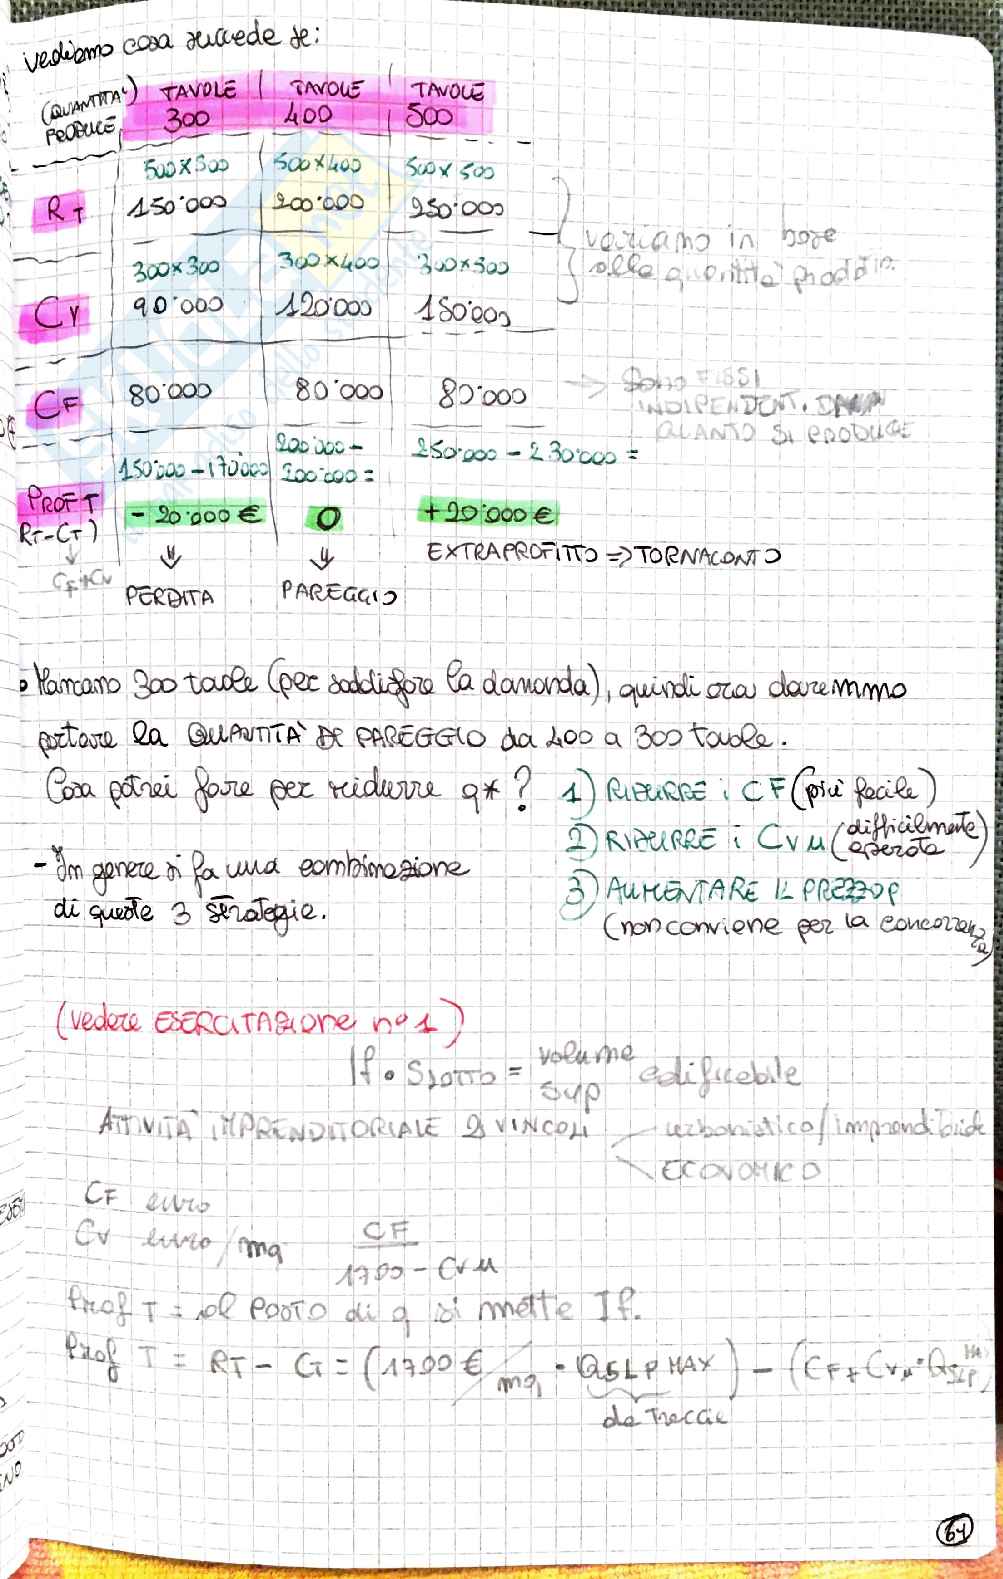 vediamo cosa succede se:
(QUANTITA') PRODUCE | TAVOLE 300 | TAVOLE 400 | TAVOLE 500
500×300 | 500×400 | 500×500
RT | 150'000 | 200'000 | 250'000
variamo in base
alle quantità prodotte.
300×300 | 300×400 | 300×500
CV | 90'000 | 120'000 | 150'000
CF | 80'000 | 80'000 | 80'000 → SONO FISSI
INDIPENDENT. DA
QUANTO SI PRODUCE
150'000 - 170'000 | 200'000 - 200'000 = | 250'000 - 230'000 =
PROF T | - 20'000 € | 0 | +20'000 €
RT - CT)
CF + CV
EXTRAPROFITTO => TORNACONTO
PERDITA | PAREGGIO
• Mancano 300 tavole (per soddisfare la domanda), quindi ora daremmo
portare la QUANTITÀ DI PAREGGIO da 400 a 300 tavole.
Cosa potrei fare per ridurre q*? 1) RIDURRE i CF (più facile)
2) RIDURRE i CVU (difficilmente operata)
- In genere si fa una combinazione
di queste 3 strategie.
3) AUMENTARE IL PREZZO P
(non conviene per la concorrenza)
(vedere ESERCITAZIONE n° 1)
If • SLOTTO = volume/sup edificabile
ATTIVITÀ IMPRENDITORIALE 2 VINCOLI
urbanistico/imprenditoriale
ECONOMICO
CF euro
CV euro/mq
CF / 1700 - CVU
Prof T = al POSTO di q si mette If.
Prof T = RT - CT = (1700 €/mq • QSLP MAX) - (CF + CVU • QSLP MAX)
da Traccia
64